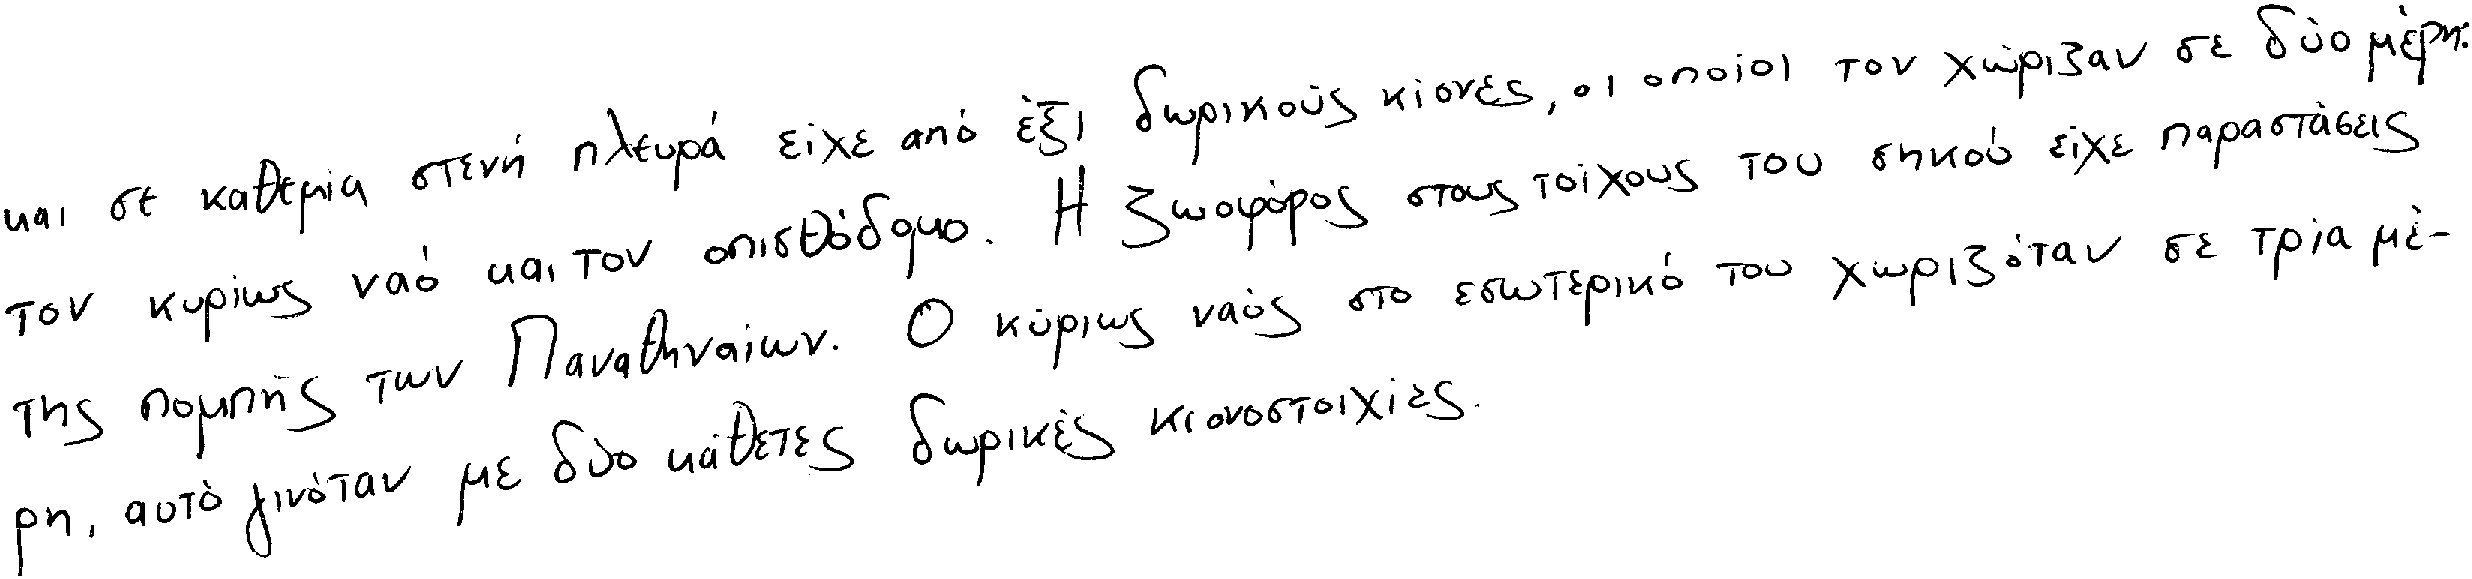 και σε καθεμία στενή πλευρά είχε από έξι δωρικούς κίονες, οι οποίοι τον χώριζαν σε δύο μέρη:
τον κυρίως ναό και τον οπισθόδομο. Η ζωοφόρος στους τοίχους του σηκού είχε παραστάσεις
της πομπής των Παναθηναίων. Ο κύριως ναός στο εσωτερικό του χωριζόταν σε τρία μέ-
ρη, αυτό γινόταν με δύο κάθετες δωρικές κιονοστοιχίες.